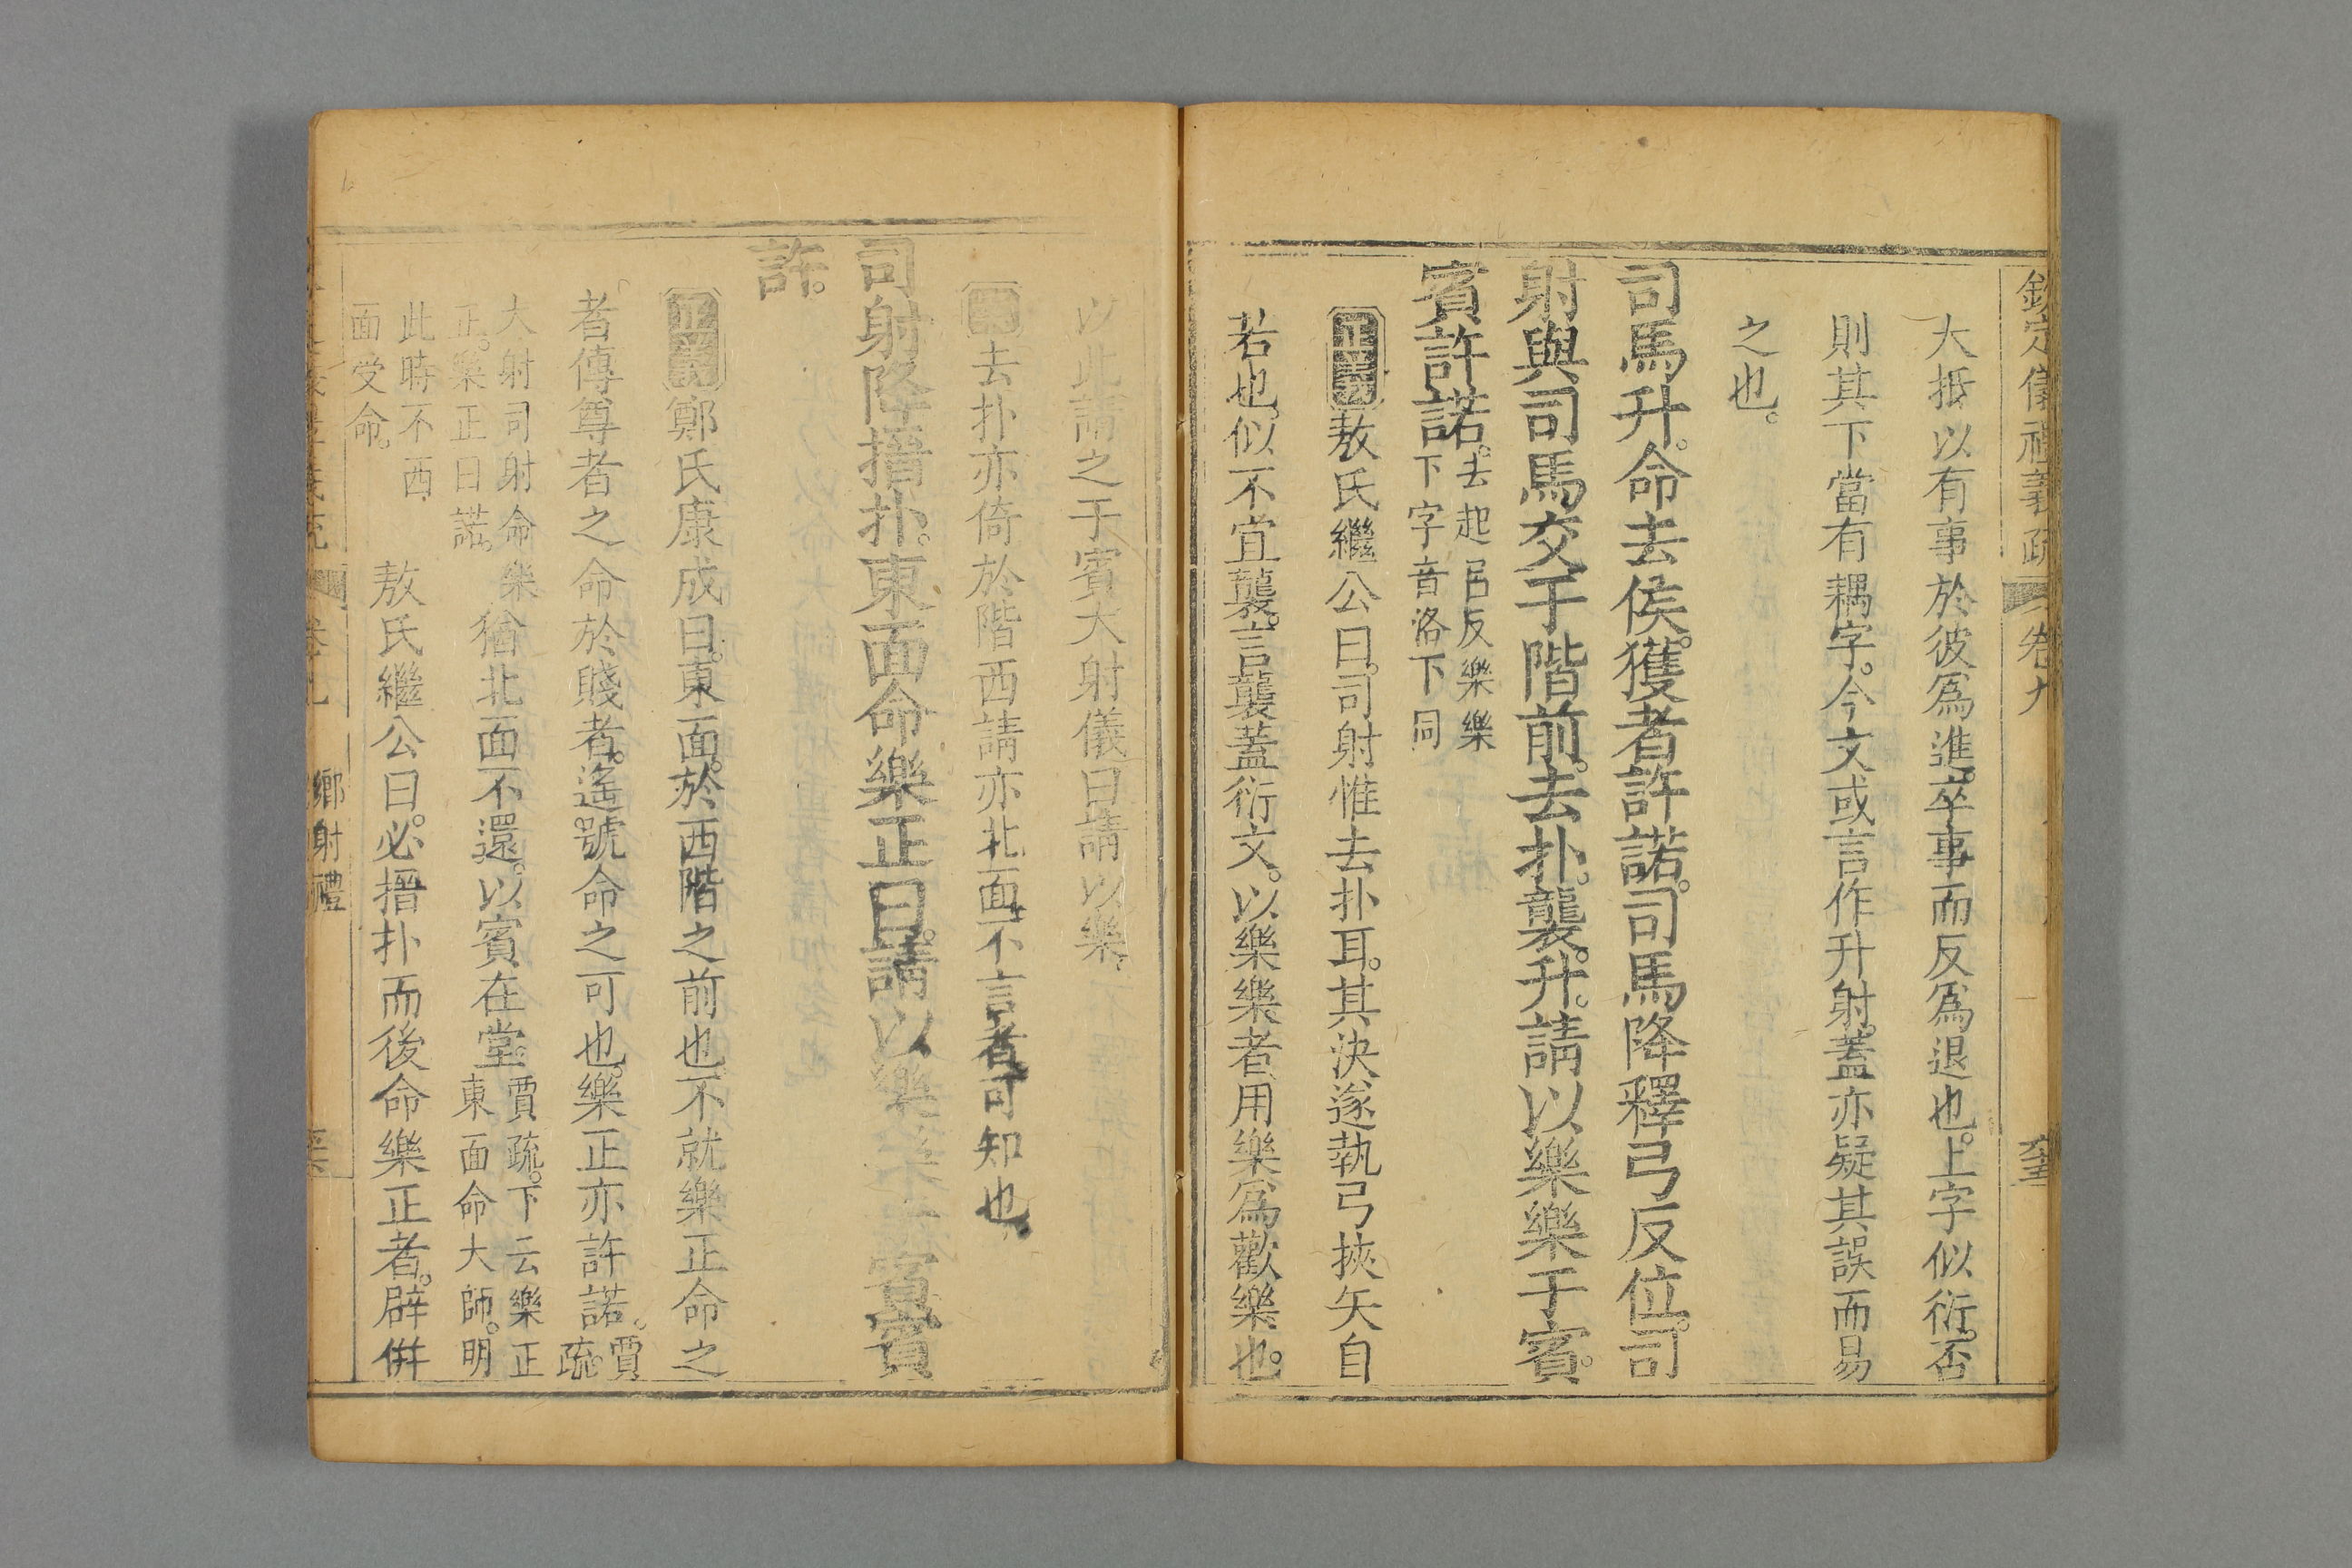 欽定儀禮義疏 卷九
大抵以有事於彼爲進。卒事而反爲退也。上字似衍。否
則其下當有耦字。今文或言作升射。蓋亦疑其誤而易
之也。
司馬升。命去侯。獲者許諾。司馬降釋弓反位。司
射與司馬交于階前。去扑。襲。升。請以樂樂于賓。
賓許諾。去起呂反樂樂
下字音洛下同
正義敖氏繼公曰。司射惟去扑耳。其決遂執弓挾矢自
若也。似不宜襲。言襲蓋衍文。以樂樂者。用樂爲歡樂也。
以此請之于賓大射儀曰請以樂
去扑亦倚於階西請亦北面不言者可知也
司射降搢扑。東面命樂正曰。請以樂樂于賓賓
許。
正義鄭氏康成曰。東面。於西階之前也不就樂正命之
者傳尊者之命於賤者。遙號命之可也。樂正亦許諾。賈
疏。
大射司射命樂
正。樂正曰諾。
猶北面不還。以賓在堂。
賈疏。下云樂正
東面命大師。明
此時不西
面受命。
敖氏繼公曰。必搢扑而後命樂正者。辟併
卷九 鄉射禮